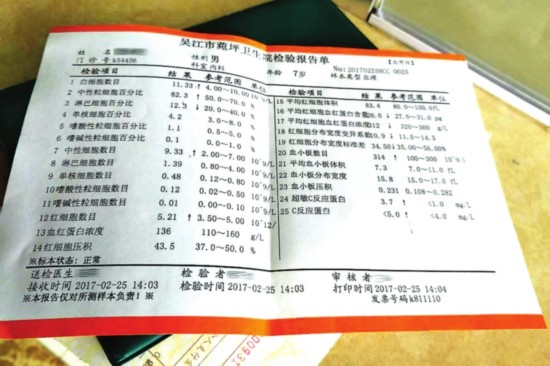 吴江市菀坪卫生院检验报告单
姓名
性别 男
年龄 7岁
No:20170225BCC 0025
门诊号 k54436
科室 内科
检验项目 结果 参考范围 单位
1 白细胞数目 11.33 ↑ 4.00~10.00
2 中性粒细胞百分比 82.3 ↑ 50.0~70.0 %
3 淋巴细胞百分比 12.3 20.0~40.0 %
4 单核细胞百分比 4.2 3.0~8.0 %
5 嗜酸性粒细胞百分比 1.1 0.5~5.0 %
6 嗜碱性粒细胞百分比 0.1 0.0~1.0 %
7 中性细胞数目 9.33 ↑ 2.00~7.00 10^9/L
8 淋巴细胞数目 1.39 0.80~4.00 10^9/L
9 单核细胞数目 0.48 0.12~0.80 10^9/L
10嗜酸性粒细胞数目 0.12 0.02~0.50 10^9/L
11嗜碱性粒细胞数目 0.01 0.00~0.10 10^9/L
12红细胞数目 5.21 ↑ 3.50~5.00 10^12/L
13血红蛋白浓度 136 110~160 g/L
14红细胞压积 43.5 37.0~50.0 %
检验项目 结果 参考范围 单位
15 平均红细胞体积 83.4 80.0~100.0 fL
16 平均红细胞血红蛋白含量
17 平均红细胞血红蛋白浓度 320~360 g/L
18 红细胞分布宽度变异系数 11.5~14.5
19 红细胞分布宽度标准差 34.50 35.00~56.00
20 血小板数目 314 100~300 10^9/L
21 平均血小板体积 7.3 7.0~11.0 fL
22 血小板分布宽度 15.8 15.0~17.0
23 血小板压积 0.231 0.108~0.282
24 超敏C反应蛋白 3.7 ↑ <1.0 mg/L
25 C反应蛋白 <5.0 <4.0 mg/L
※标本状态: 正常
送检医生
检验者
审核者
接收时间 2017-02-25 14:03
检验时间 2017-02-25 14:03
打印时间 2017-02-25 14:04
※本报告仅对所测样本负责! ※
发票号码k811110